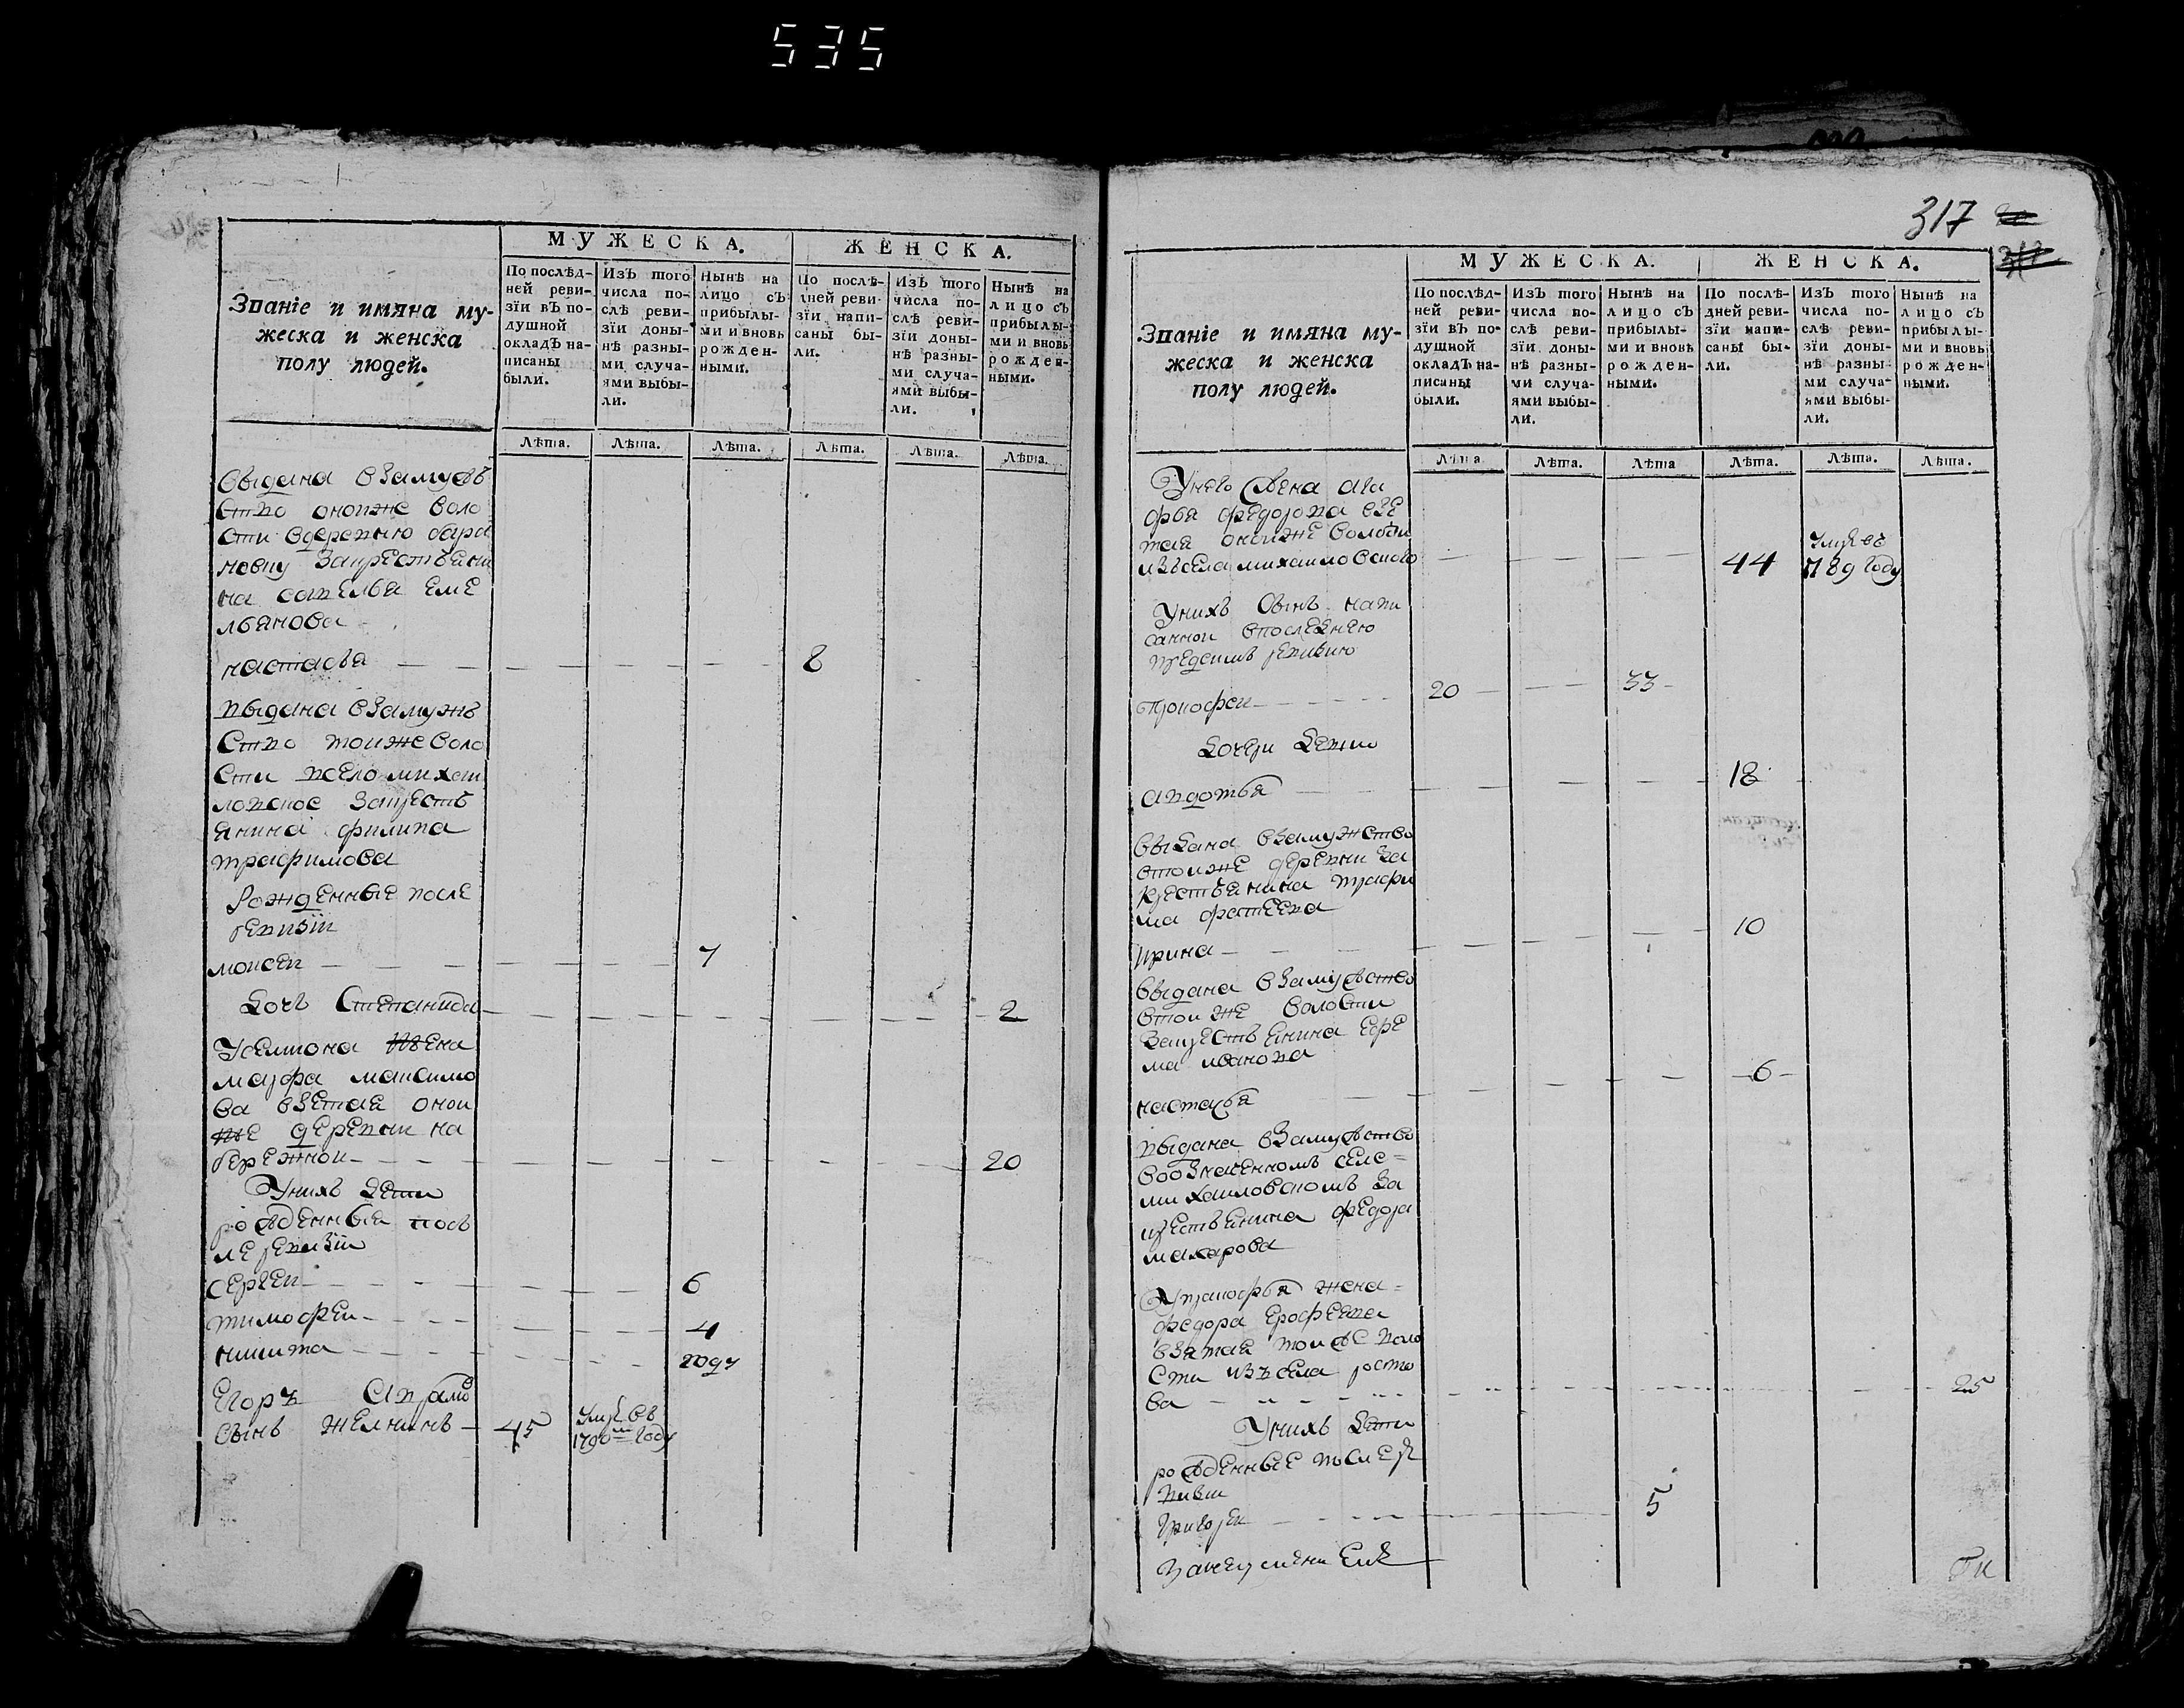 535
МУЖЕСКА.
ЖЕНСКА.
Званіе и имяна му-
жеска и женска
полу людей.
По послѣд-
ней реви-
зїи въ по-
душной
окладъ на-
писаны
были.
Изъ того
числа по-
слѣ реви-
зїи доны-
нѣ разны-
ми случа-
ями выбы-
ли.
Нынѣ на
лицо съ
прибылы-
ми и вновь
рожден-
ными.
По послѣ-
дней реви-
зїи напи-
саны бы-
ли.
Изъ того
числа по-
слѣ реви-
зїи доны-
нѣ разны-
ми случа-
ями выбы-
ли.
Нынѣ на
лицо съ
прибылы-
ми и вновь
рожден-
ными.
Лѣта. Лѣта. Лѣта. Лѣта. Лѣта. Лѣта.
выдана взамужъ
ство оноиже воло
сти вдеревню бара
новку закрестьяни
на савелья еме
льянова
настасья 8
выдана взамужъ
ство тоиже воло
сти всело михаи
ловское закресть
янина филипа
трафимова
Рожденные после
ревизїи
моисеи 7
дочь Степанида 2
жена
мавра максимо
ва взетая онои
же деревни на
бережнои 20
Унихъ дети
рожденныя посъ
ле ревизїи
сергеи 6
тимофеи 4
никита году
Егоръ Авраамо
Сынъ 45 Умре въ
1790м году
317
МУЖЕСКА.
ЖЕНСКА.
Званіе и имяна му-
жеска и женска
полу людей.
По послѣд-
ней реви-
зїи въ по-
душной
окладъ на-
писаны
были.
Изъ того
числа по-
слѣ реви-
зїи доны-
нѣ разны-
ми случа-
ями выбы-
ли.
Нынѣ на
лицо съ
прибылы-
ми и вновь
рожден-
ными.
По послѣ-
дней реви-
зїи напи-
саны бы-
ли.
Изъ того
числа по-
слѣ реви-
зїи доны-
нѣ разны-
ми случа-
ями выбы-
ли.
Нынѣ на
лицо съ
прибылы-
ми и вновь
рожден-
ными.
Лѣта. Лѣта. Лѣта Лѣта. Лѣта. Лѣта.
Унего жена ага
фья федорова взе
тая оноиже волости
изъ села михаиловского 44 Умре въ
1789 году
Унихъ сынъ напи
саннои впоследнею
предсимъ ревизию
Прокофеи 20 33
дочери
авдотья 18
выдана взамужство
втоиже деревни за
крестьянина трафи
ма фатеева
ирина 10
выдана взамужство
втоиже волости
закрестьянина ефре
ма иванова
настасья 6
выдана взамужство
михаиловскомъ за
крестьянина федора
макарова
Упрокофья жена
федора Ерофеева
взятая тоиже воло
сти изъ села росто
ва 25
Унихъ дети
рожденные после ре
визии
Григореи 5